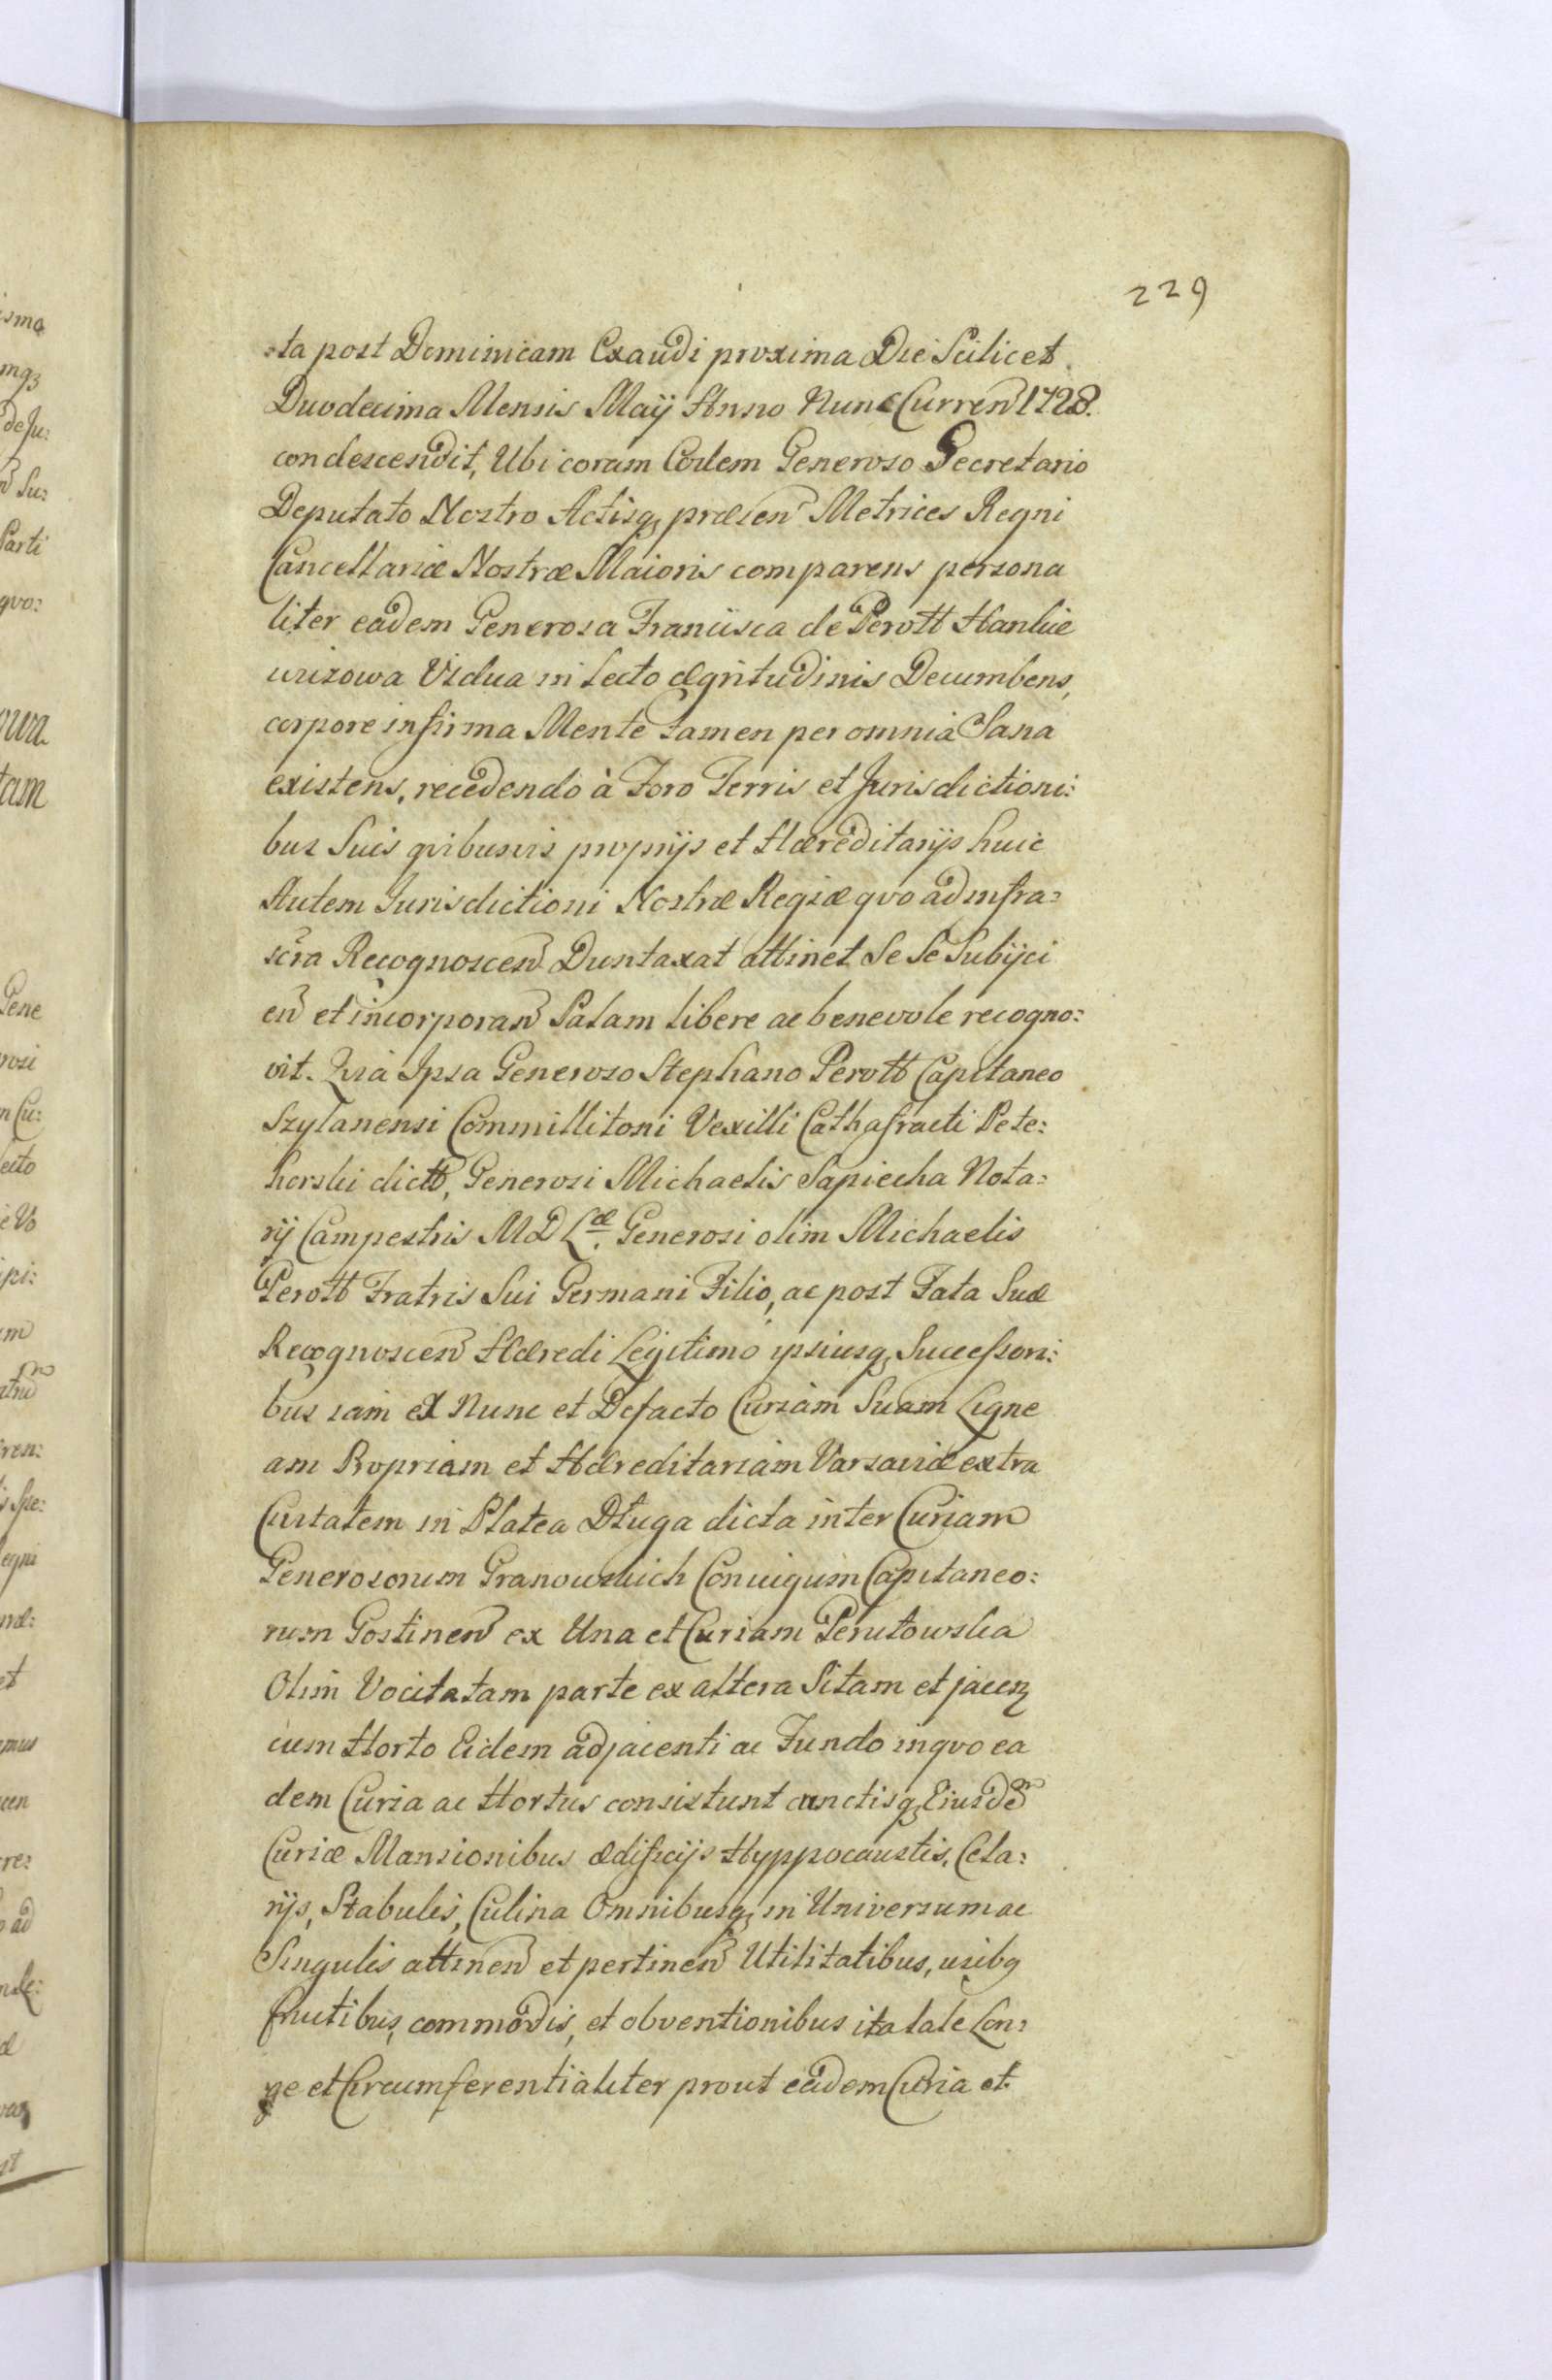 229
:ta post Dominicam Exaudi proxima Die Scilicet
Duodecima Mensis Maÿ Anno Nunc Curren 1728.
condescendit, Ubi coram Eodem Generoso Secretario
Deputato Nostro Actisq, præsen Metrices Regni
Cancellariæ Nostræ Maioris comparens persona
liter eadem Generosa Franciisca de Perott Hankie
wizowa Vidua in Lecto ægritudinis Decumbens,
corpore infirma Mente tamen per omnia Sana
existens, recedendo à Foro Terris et Jurisdictioni:
bus Suis qvibusvis proprijs et Hæreditarijs huic
Autem Jurisdictioni Nostræ Regiæ qvo ad infra:
scra Recognoscen Duntaxat attinet Se Se Subijci
en et incorporan Palam libere ac benevole recogno:
vit. Qvia Ipsa Generoso Stephano Perott Capitaneo
Szylanensi Commillitoni Vexilli Cathafracti Pete:
horski dict, Generosi Michaelis Sapiecha Nota:
rij Campestris M D L^æ. Generosi olim Michaelis
Perott Fratris Sui Germani Filio, ac post Fata Suæ
Recognoscen Hæredi Legitimo ipsiusq, Successori:
bus iam ex Nunc et Defacto Curiam Suam Ligne
am Propriam et Hæreditariam Varsaviæ extra
Civitatem in Platea Długa dicta inter Curiam
Generosorum Granowskich Coniugum Capitaneo:
rum Gostinen ex Una et Curiam Perutowska
Olim Vocitatam parte ex altera Sitam et jacen
cum Horto Eidem adjacenti ac Fundo in qvo ea
dem Curia ac Hortus consistunt cunctisq, Eiusde
Curiæ Mansionibus ædificijs Hyppocaustis, Cela:
rijs, Stabulis, Culina Omnibusq, in Universum ac
Singulis attinen et pertinen Utilitatibus, usibq
fructibus, commodis, et obventionibus ita late Lon:
ge et Circumferentialiter prout eadem Curia et